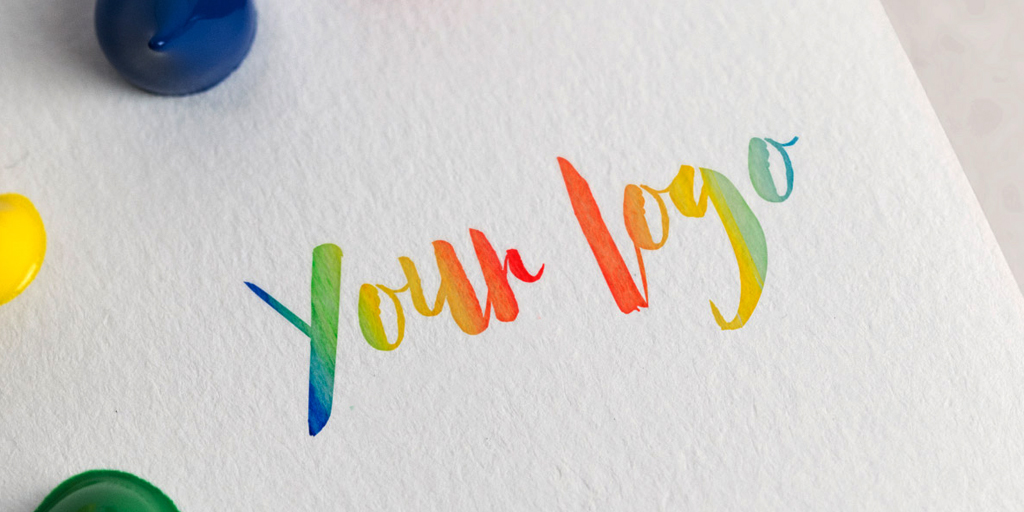 Your logo